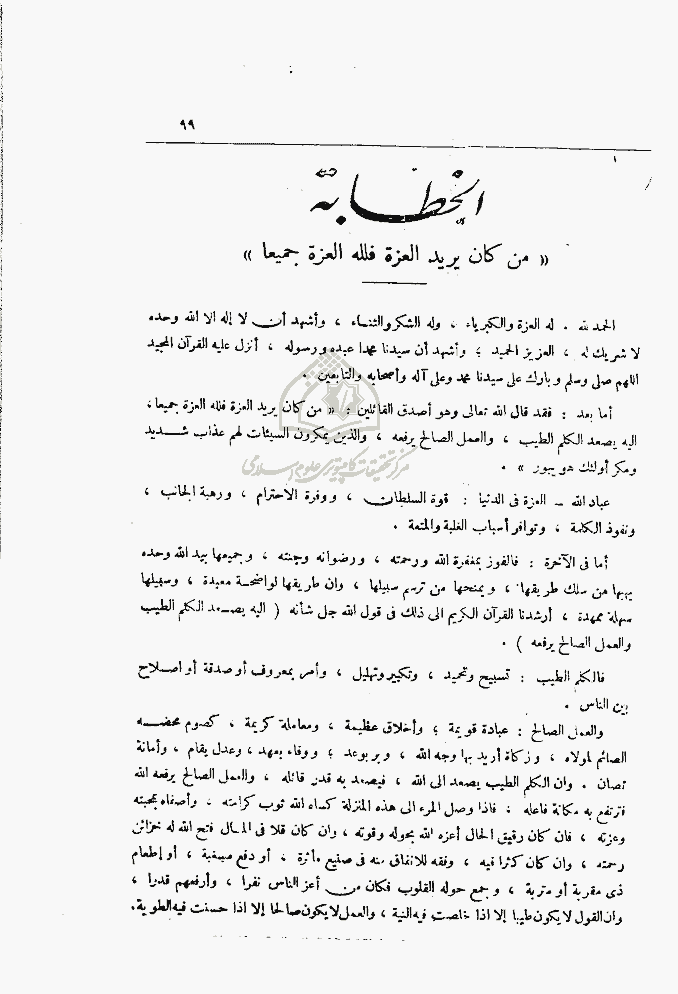 ٩٩
الخطابة
« من كان يريد العزة فلله العزة جميعا »
الحمد لله . له العزة والكبرياء ، وله الشكر والثناء ، وأشهد أن لا إله الا الله وحده
لا شريك له ، العزيز الحميد ؛ وأشهد أن سيدنا محمدا عبده ورسوله ، أنزل عليه القرآن المجيد
اللهم صلى وسلم وبارك على سيدنا محمد وعلى آله وأصحابه والتابعين .
أما بعد : فقد قال الله تعالى وهو أصدق القائلين : « من كان يريد العزة فلله العزة جميعا ،
اليه يصعد الكلم الطيب ، والعمل الصالح يرفعه ، والذين يمكرون السيئات لهم عذاب شديد
ومكر أولئك هو يبور » .
مركز تحقيقات كامپيوترى علوم اسلامى
عباد الله – العزة فى الدنيا : قوة السلطان ، ووفرة الاحترام ، ورهبة الجانب ،
ونفوذ الكلمة ، وتوافر أسباب الغلبة والمتعة .
أما فى الآخرة : فالفوز بمغفرة الله ورحمته ، ورضوانه وجنته ، وجميعها بيد الله وحده
يهبها من سلك طريقها ، ويمنحها من ترسم سبيلها ، وان طريقها لواضحة معبدة ، وسبيلها
سهلة ممهدة ، أرشدنا القرآن الكريم الى ذلك فى قول الله جل شأنه ( اليه يصعد الكلم الطيب
والعمل الصالح يرفعه ) .
فالكلم الطيب : تسبيح وتحميد ، وتكبير وتهليل ، وأمر بمعروف أو صدقة أو اصلاح
بين الناس .
والعمل الصالح : عبادة قويمة ؛ وأخلاق عظيمة ، ومعاملة كريمة ، كصوم محضه
الصائم لمولاه ، وزكاة أريد بها وجه الله ، وبر بوعد ؛ ووفاء بعهد ، وعدل يقام ، وأمانة
تصان . وان الكلم الطيب يصعد الى الله ، فيصعد به قدر قائله ، والعمل الصالح يرفعه الله
فترتفع به مكانة فاعله ، فاذا وصل المرء الى هذه المنزلة كساه الله ثوب كرامته ، وأصفاه بمحبته
وعزته ، فان كان رقيق الحال أعزه الله بحوله وقوته ، وان كان قلا فى المال فتح الله له خزائن
رحمته ، وان كان كثرا فيه ، وفقه للانفاق منه فى صنيع مأثرة ، أو دفع مسغبة ، أو إطعام
ذى مقربة أو متربة ، وجمع حوله القلوب فكان من أعز الناس نفرا ، وأرفعهم قدرا ،
وان القول لا يكون طيبا إلا اذا خلصت فيه النية ، والعمل لا يكون صالحا إلا اذا حسنت فيه الطوية .